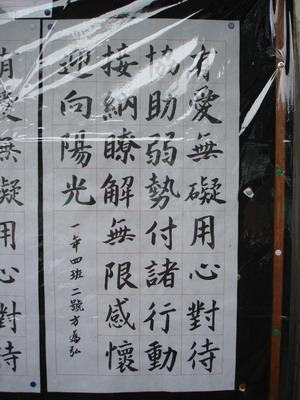 有愛無礙用心對待
協助弱勢付諸行動
接納瞭解無限感懷
迎向陽光
一年四班二號方為弘
有愛無礙用心對待